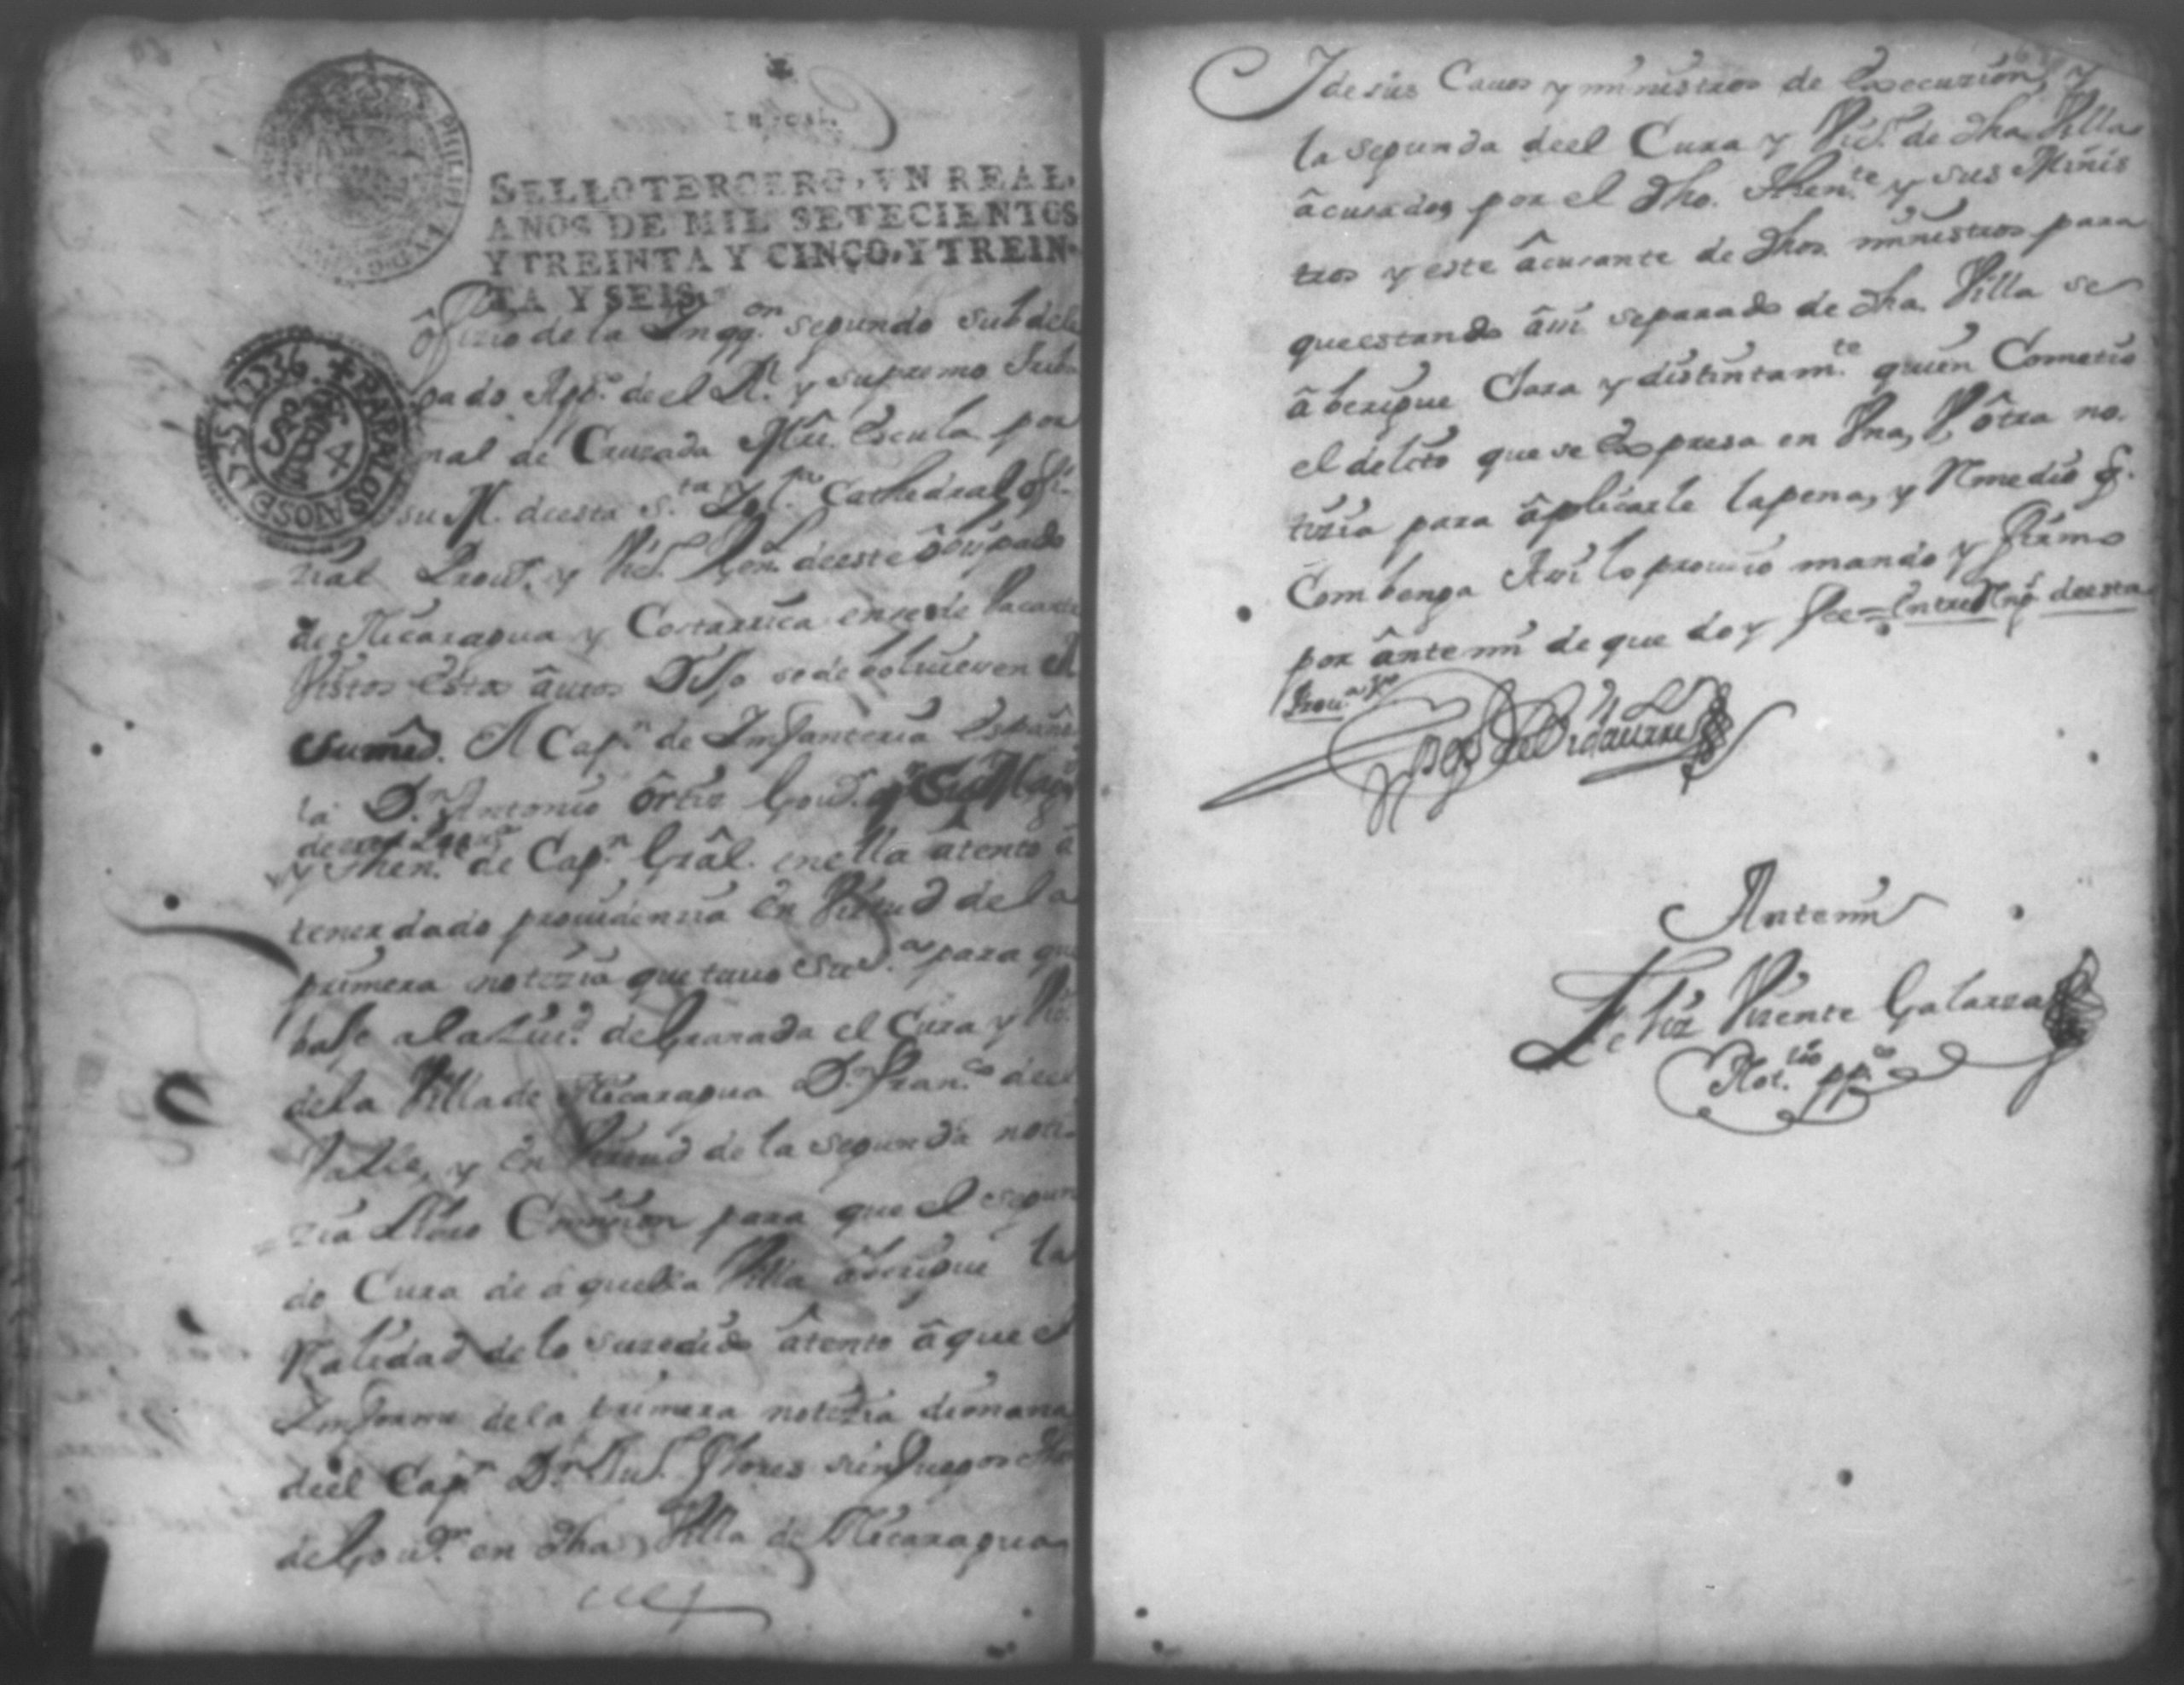 Un real.
SELLO TERCERO, VN REAL,
AÑOS DE MIL SETECIENTOS
Y TREINTA Y CINCO, Y TREIN-
TA Y SEIS.
PARA LOS AÑOS DE 1735 Y 1736
ôfizio de la Inqq.on segundo subdele
gado App.co deel R.l y supremo tribu
nal de Cruzada Mrô. escuela por
su M. deesta S.ta Yg.a Cathedral, ofi-
zial Prou.r y Vic.o Gen. deeste ôbispado
de Nicaragua y Costarrica en sede vacante
Vistos estos âutos Dijo se debolviesen al
Cap.n de Infanteria Españo
la D.n Antonio ôrtiz Gou.or
y Then.te de Cap.n Grâl. en ella âtento â
tener dado prouidenzia en Virtud de la
primera notizia que tuuo para que
baje a la Ciu.d de Granada el Cura y Vic.
de la Villa de Nicaragua D. Fran.co deel
Valle, y en Virtud de la segunda noti-
zia libro Comision para que el segun
do Cura de aquella Villa âberigue la
Realidad de lo suzedido âtento â que el
Informe de la primera notizia dimana
deel Cap.n D.n Flores sienfuegos
de Gou.or en dha Villa de Nicaragua
Y de sus Cauos y ministros de execuzion, y
la segunda deel Cura y Vic.o de dha Villa
âcusados por el dho. Then.te y sus Minis
tros y este âcusante de dhos. ministros para
que estando âsi separado de dha Villa se
âberigue Clara y distintam.te quien Cometio
el delito que se expresa en Vna, V ôtra no-
tizia para âplicarle la pena, y Remedio q.
Combenga Assi lo proueio mando y firmo
por ânte mi de que doy fee = Entre Rng.s deesta
Prou.a
Vidaurre
Ante mi
Feliz Vizente Galarza
Not.rio pp.co